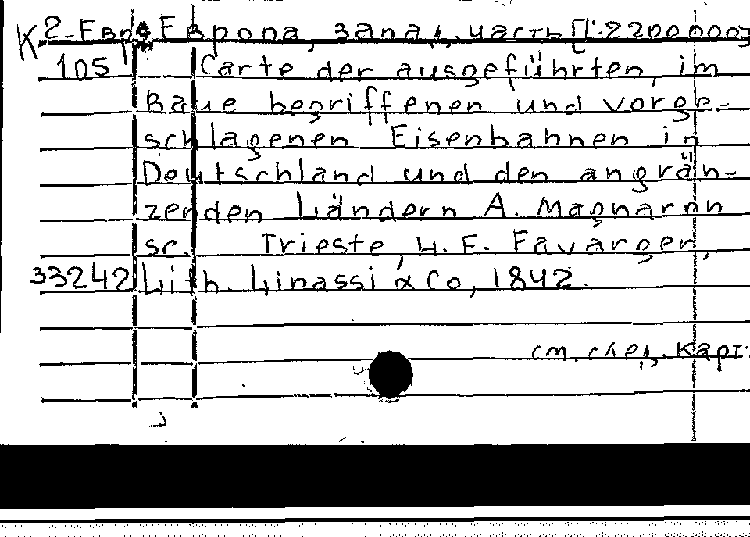 К 2-Евр Европа, запад. часть [1:2200000]
105 Carte der ausgeführten, im
Baue begriffenen und vorge-
schlagenen Eisenbahnen in
Deutschland und den angrän-
zenden Ländern A. Magnaron
sc. Trieste, H. F. Favarger,
33242 Lith. Linassi & Co, 1842.
см. след. карт